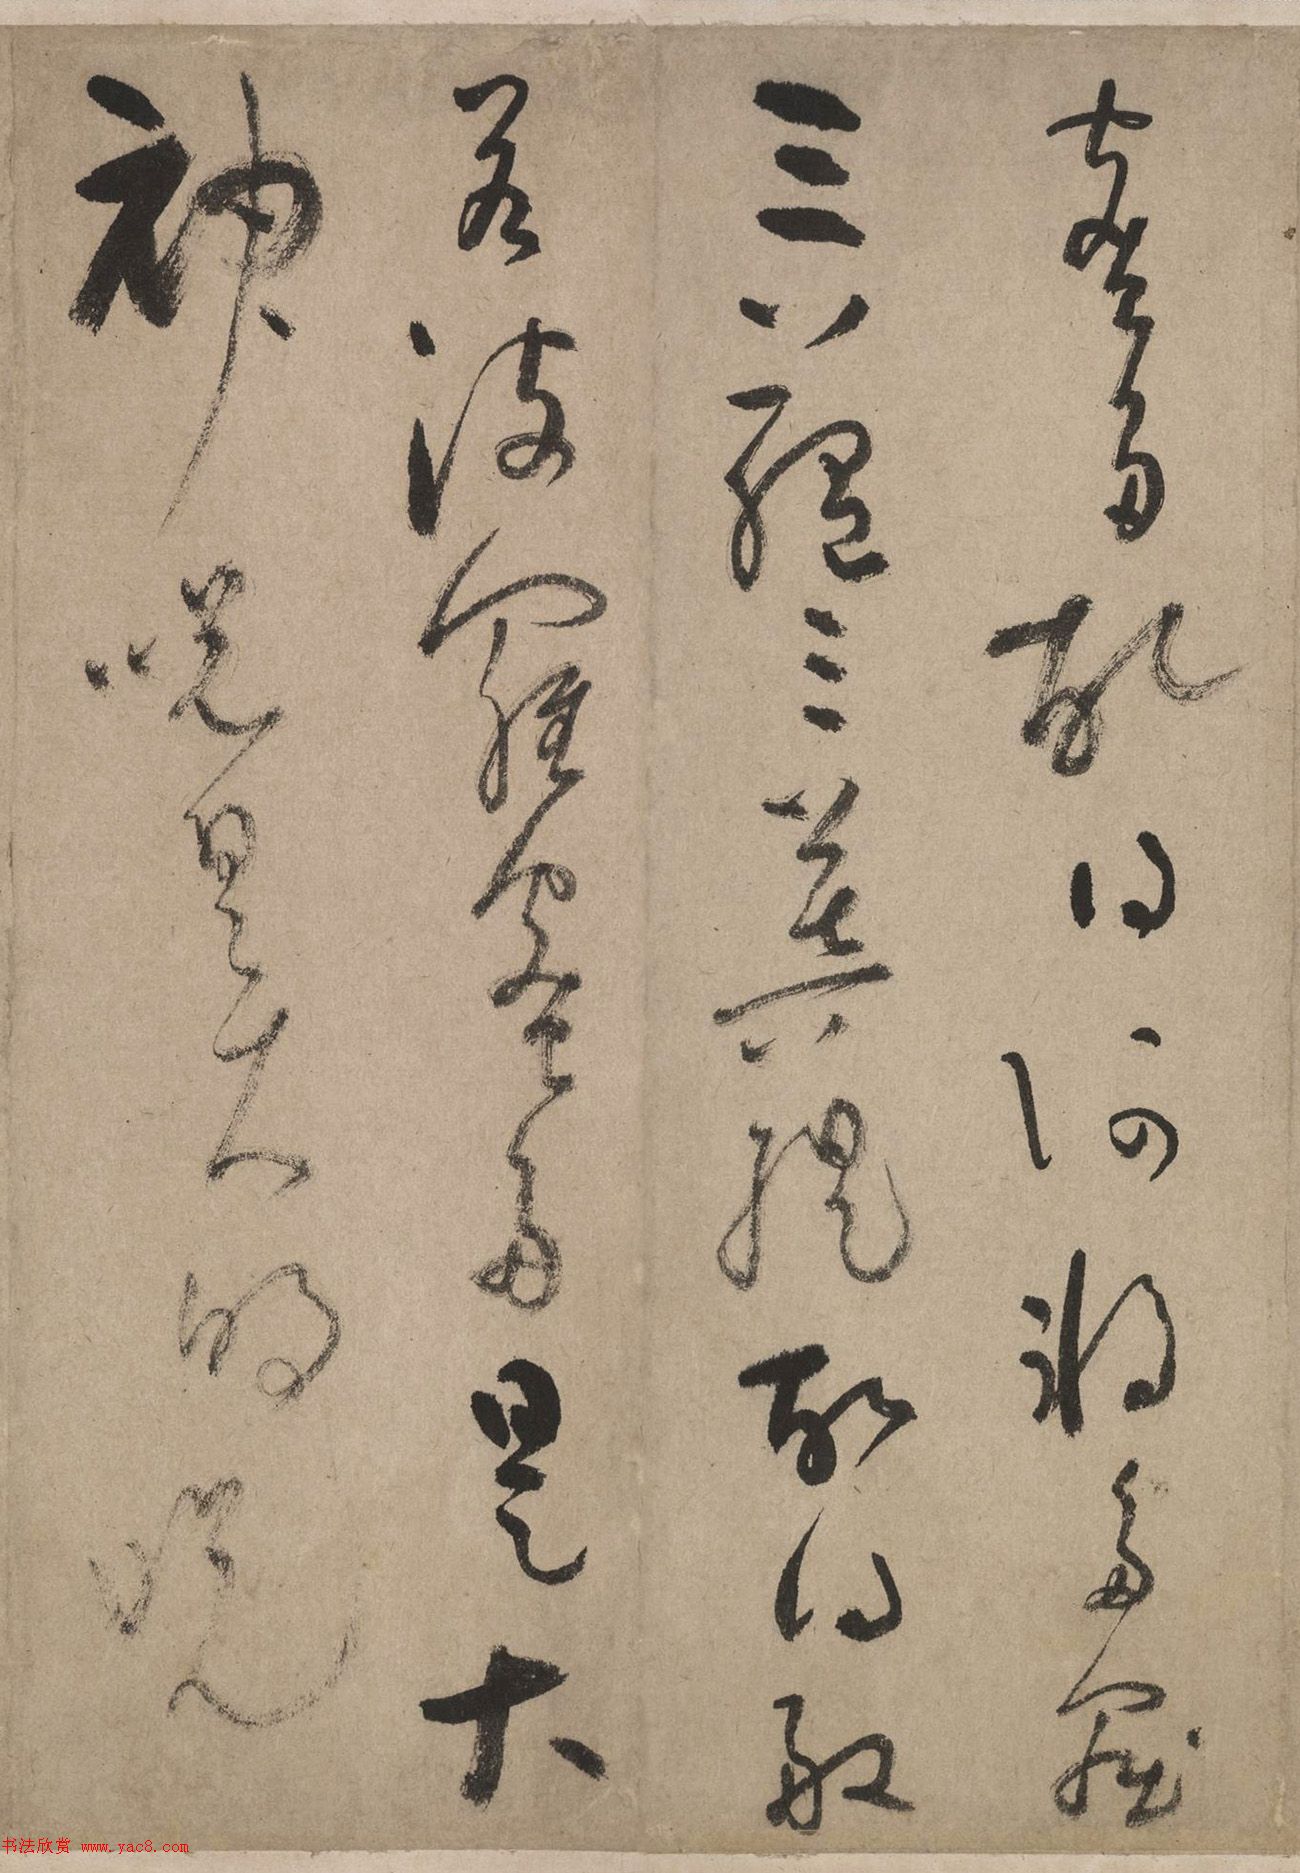 蜜多故得阿耨多羅
三藐三菩提故知般
若波羅蜜多是大
神咒是大明咒
书法欣赏 www.yac8.com